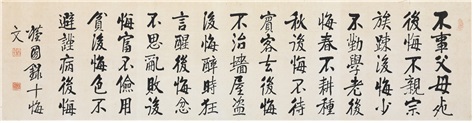 不事父母死
後悔不親宗
族踈後悔少
不勤學老後
悔春不耕種
秋後悔不待
賓客去後悔
不治墻屋盗
後悔醉時狂
言醒後悔忿
不思亂敗後
悔富不儉用
貧後悔色不
避謹病後悔
國錄十悔
文